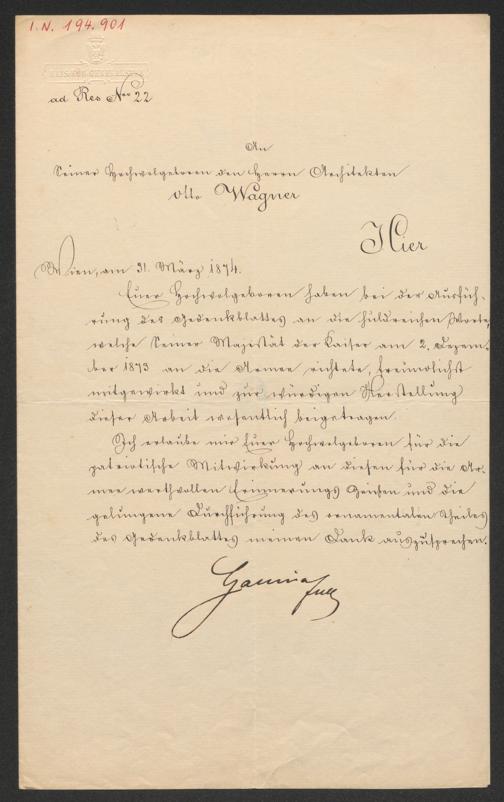 I.N. 194.901
ad Res Nro 22
An
Seiner Hochwolgeboren den Herrn Architekten
Otto Wagner
Hier
Wien, am 31. März 1874.
Euer Hochwolgeboren haben bei der Ausfüh-
rung des Gedenkblattes an die huldreichen Worte,
welche Seiner Majestät der Kaiser am 2. Dezem-
ber 1873 an die Armee richtete, freundlichst
mitgewirkt und zur würdigen Herstellung
dieser Arbeit wesentlich beigetragen.
Ich erlaube mir Euer Hochwolgeboren für die
patriotische Mitwirkung an diesen für die Ar-
mee werthvollen Erinnerungs Zeichen und die
gelungene Durchführung des ornamentalen Theiles
des Gedenkblattes meinen Dank auszusprechen.